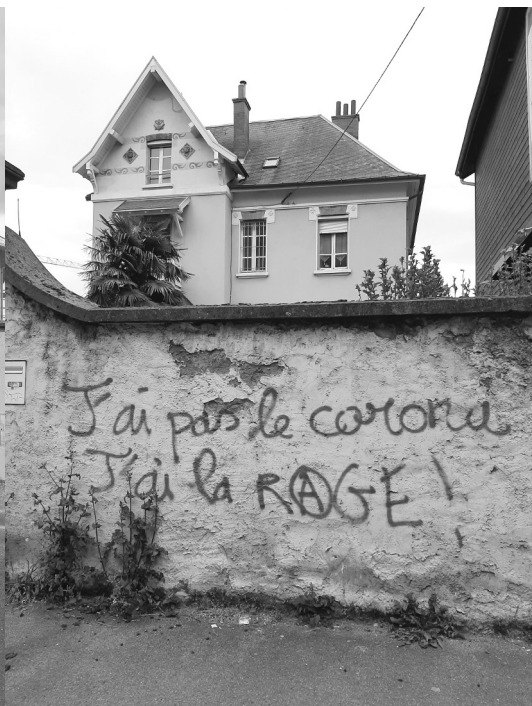 J'ai pas le corona
J'ai la RAGE !